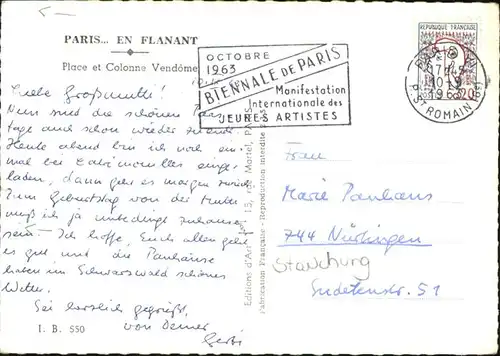 PARIS... EN FLANANT
Place et Colonne Vendôme
OCTOBRE
1963
BIENNALE DE PARIS
Manifestation
Internationale des
JEUNES ARTISTES
REPUBLIQUE FRANÇAISE
0,20
R. ST ROMAIN
1963
Liebe Großmutti!
Nun sind die schönen Paris
tage auch schon wieder zu Ende.
Heute abend bin ich noch ein-
mal bei einge-
laden, dann geht es morgen zurück.
Zum Geburtstag von der Mutter
muß ich ja unbedingt zuhause
sein. Ich hoffe, Euch allen geht
es gut und die Panhäuse
haben im Schwarzwald schönes
Wetter.
Sei herzlich gegrüßt,
von Deiner
Gerbi
I. B. 550
Editions d'Art 15, rue Martel, PARIS
Fabrication Française - Reproduction interdite
Frau
Marie Panhans
744 Nürtingen
Sudetenstr. 51